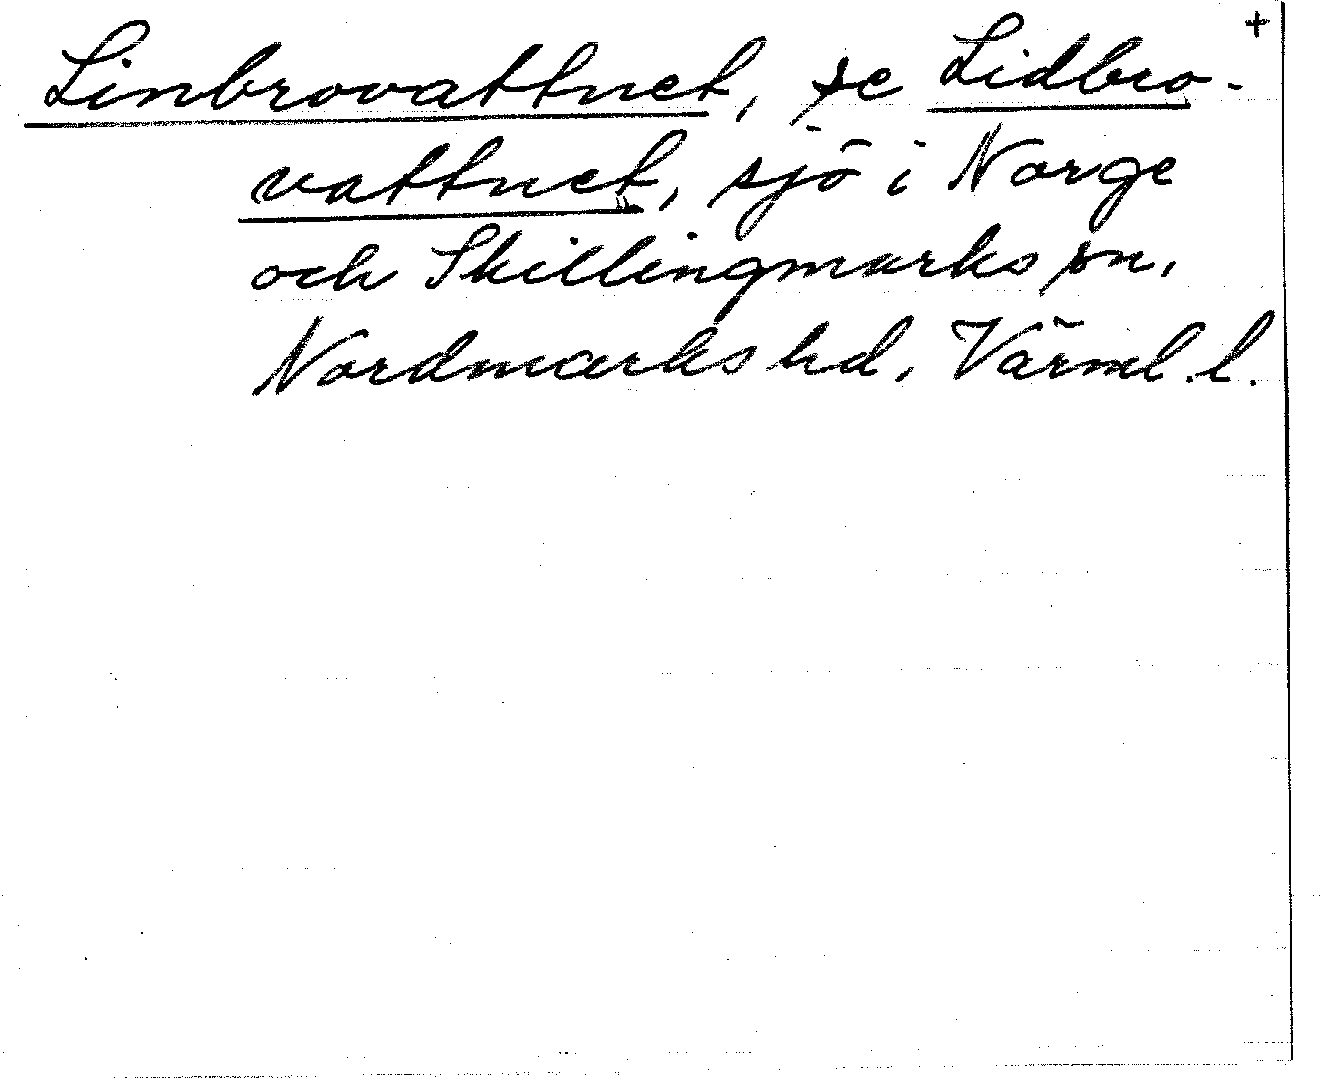 +
Linbrovattnet, se Lidbro-
vattnet, sjö i Norge
och Skillingmarks sn,
Nordmarks hd, Värml. l.